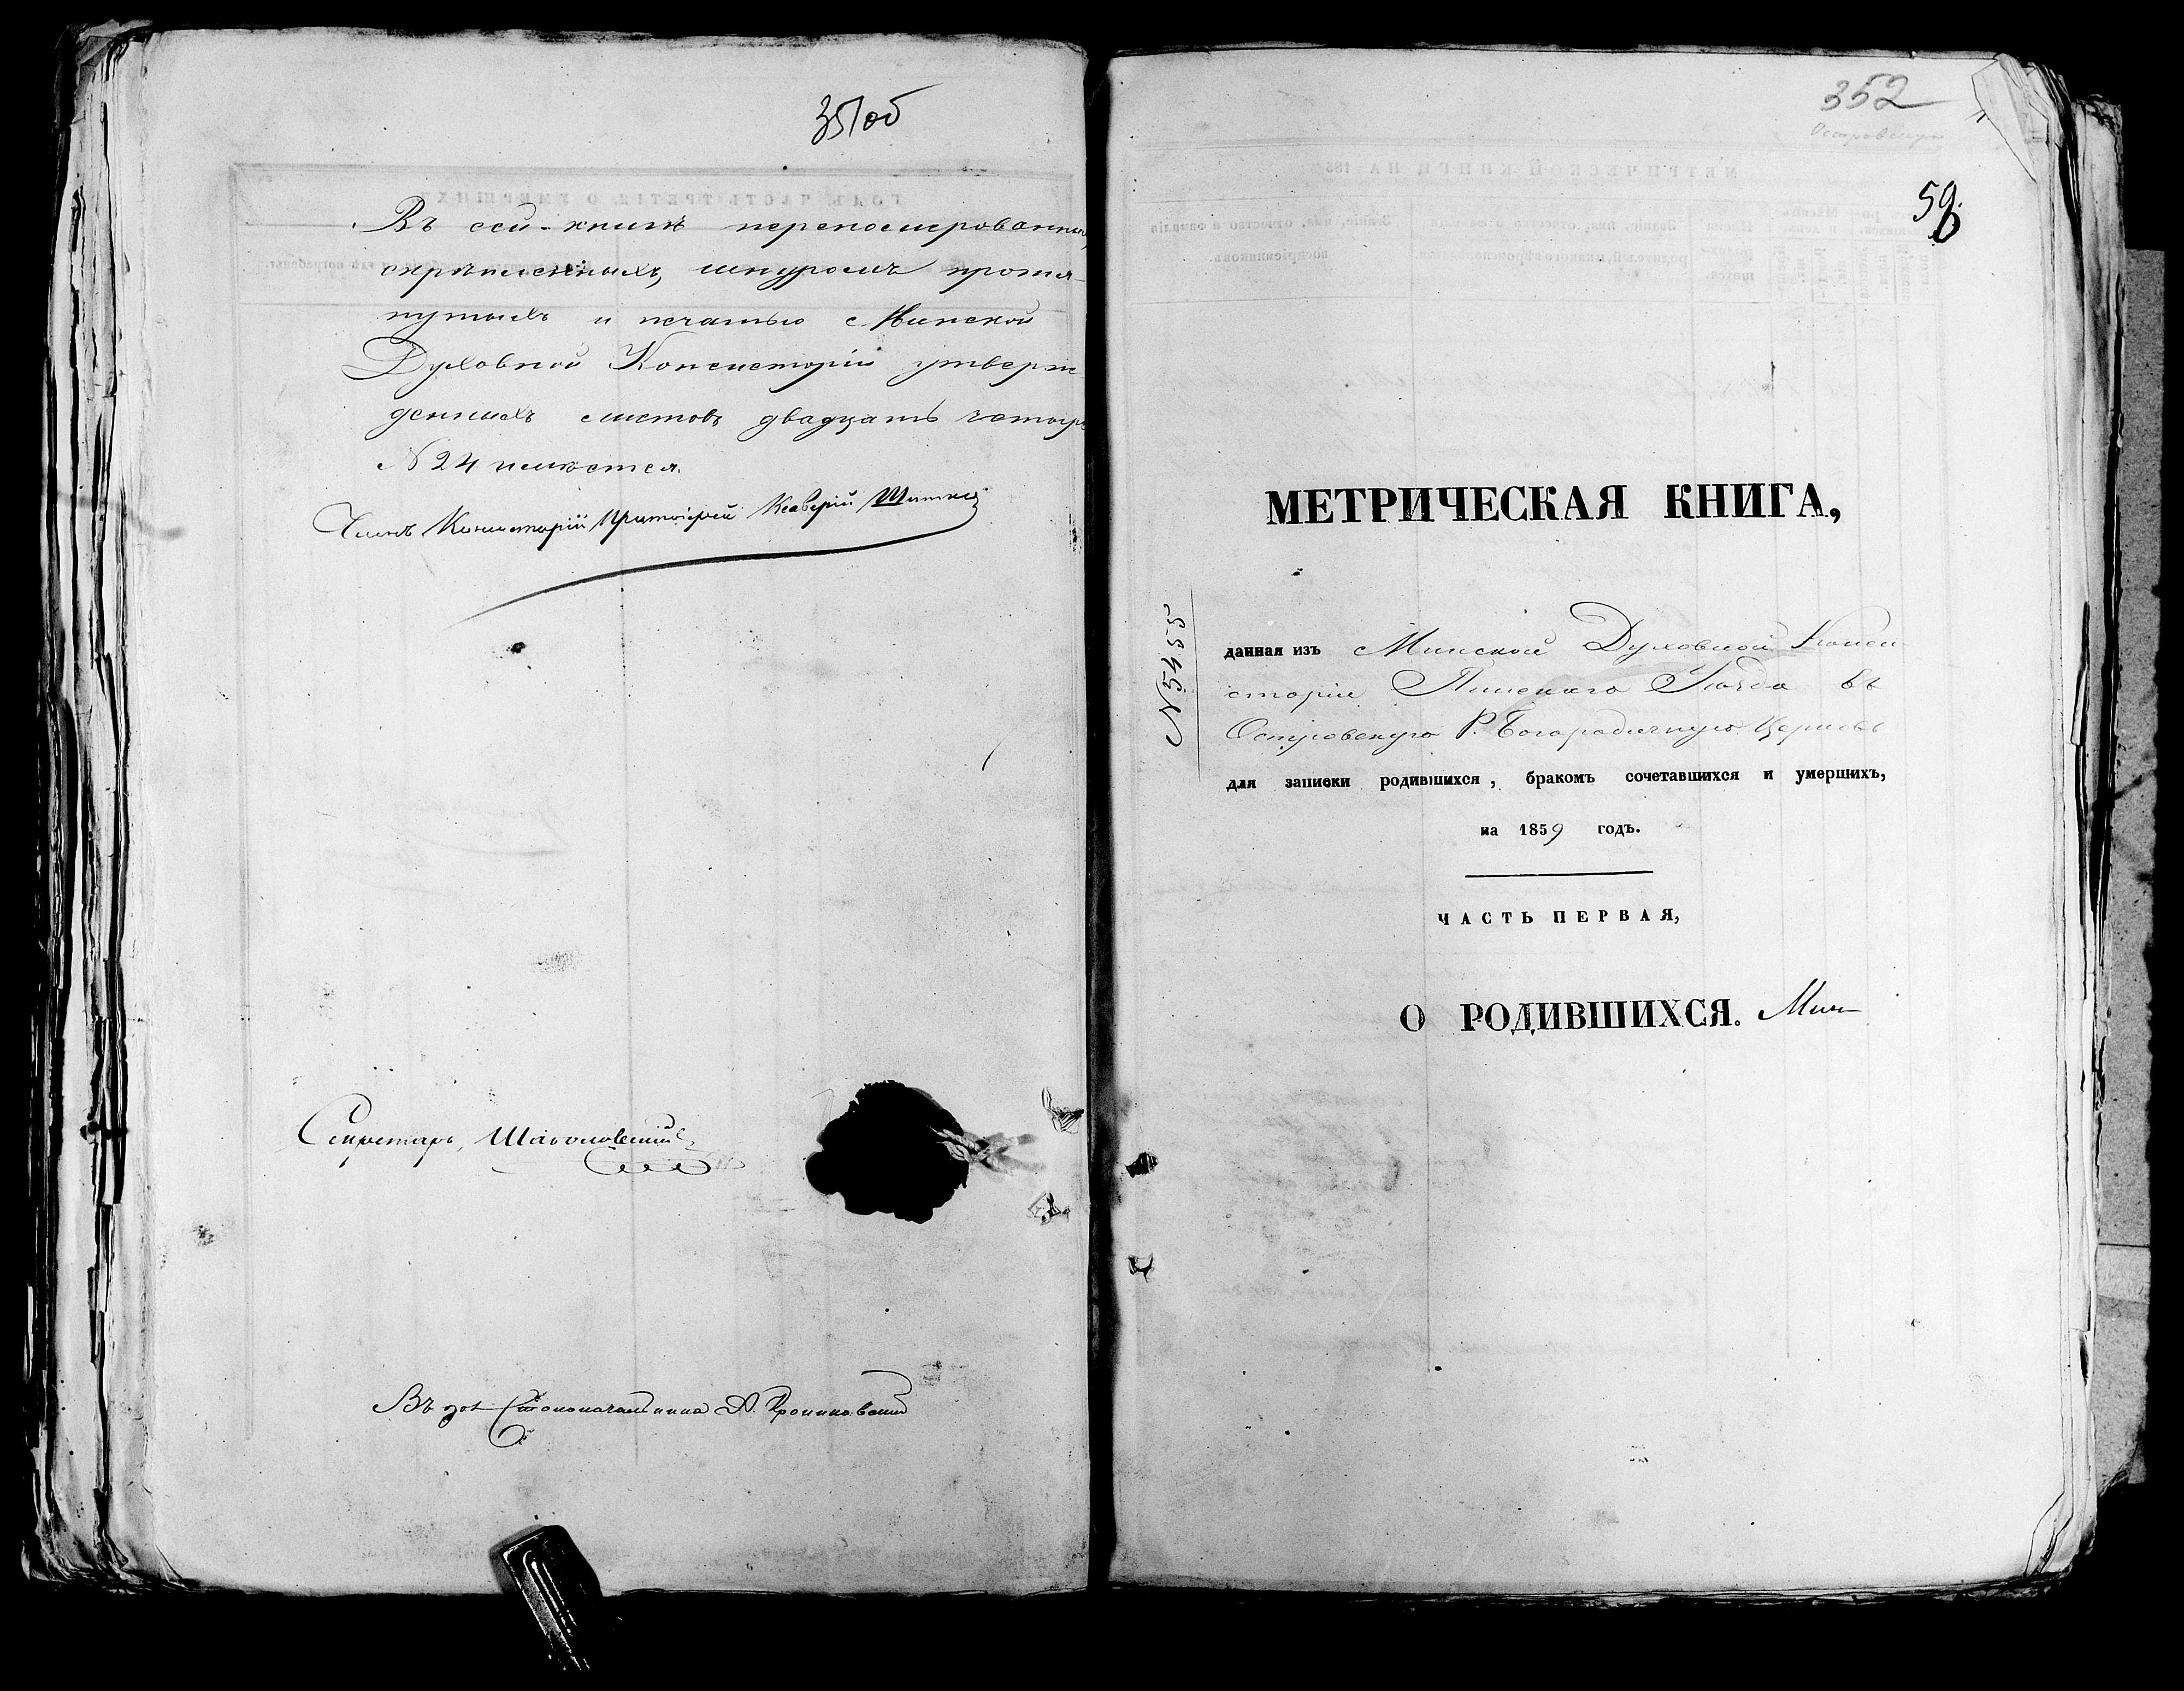 351об
Въ сей книгѣ перенумерованныхъ,
скрѣпленныхъ, шнуромъ протя-
нутыхъ и печатью Минской
Духовной Консисторіи утверж-
денныхъ листовъ двадцать четыре
№ 24 имѣется.
Членъ Консисторіи Протоіерей Ксаверій
Секретарь,
Въ дол. Столоначальника А.
352
Островскую
59.
МЕТРИЧЕСКАЯ КНИГА,
№ 5455
данная изъ Минской Духовной Конси
сторіи Пинскаго Уѣзда въ
Островскую Р. Богородичную Церковь
для записки родившихся, бракомъ сочетавшихся и умершихъ,
на 1859 годъ.
ЧАСТЬ ПЕРВАЯ,
О РОДИВШИХСЯ.